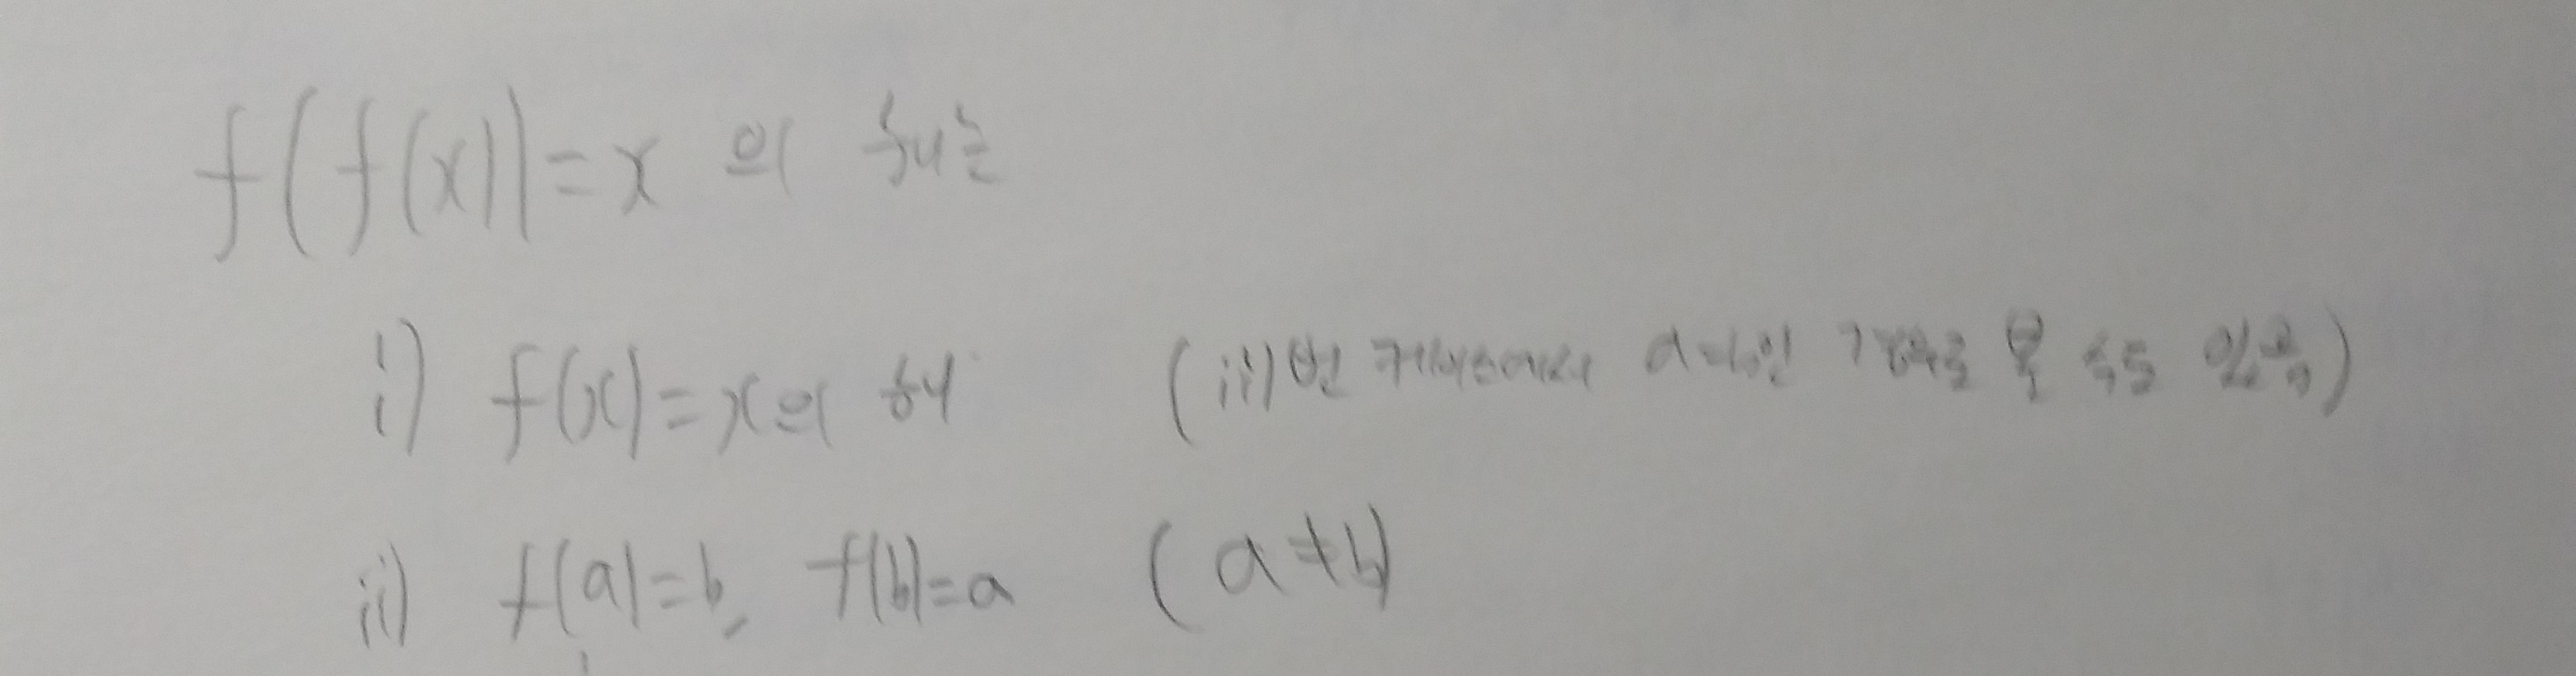 f(f(x))=x 의 해는
i) f(x)=x의 해 (ii)번 케이스에서 a=b인 경우로 볼 수도 있음)
ii) f(a)=b, f(b)=a (a≠b)